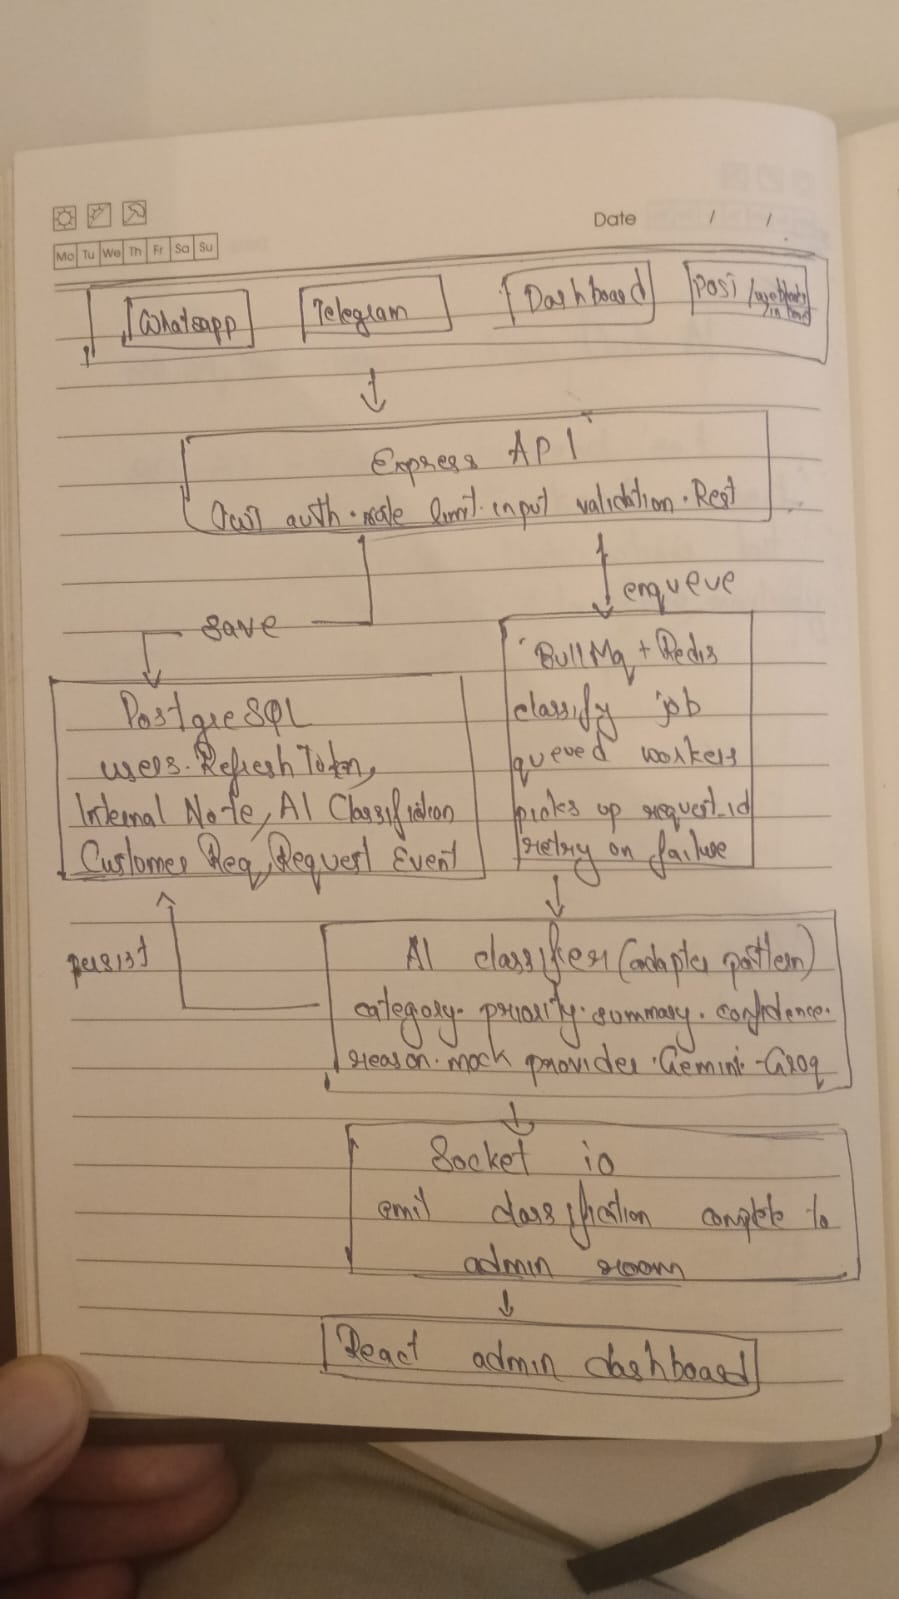 Date / /
Mo Tu We Th Fr Sa Su
Whatsapp Telegram Dashboard
Express API
auth. rate limit. input validation. Rest
save
enqueue
PostgreSQL
users. Refresh Token,
Internal Note, AI Classification
Customer Req, Request Event
BullMq + Redis
classify job
queued workers
picks up request_id
retry on failure
persist
AI classifier (adapter pattern)
category. priority. summary. confidence.
reason. mock provider. Gemini - Groq
Socket io
emit classification complete to
admin room
React admin dashboard